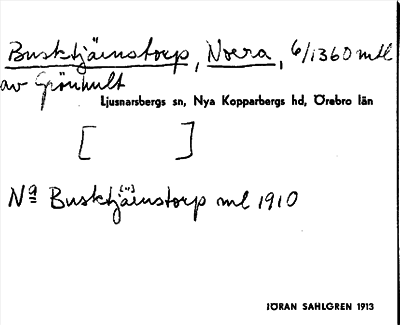 Busktjärnstorp, Norra, 6/1360 mtl
av Grönhult
Ljusnarsbergs sn, Nya Kopparbergs hd, Örebro län
[ ]
Nª Busktjärnstorp ml 1910
JÖRAN SAHLGREN 1913